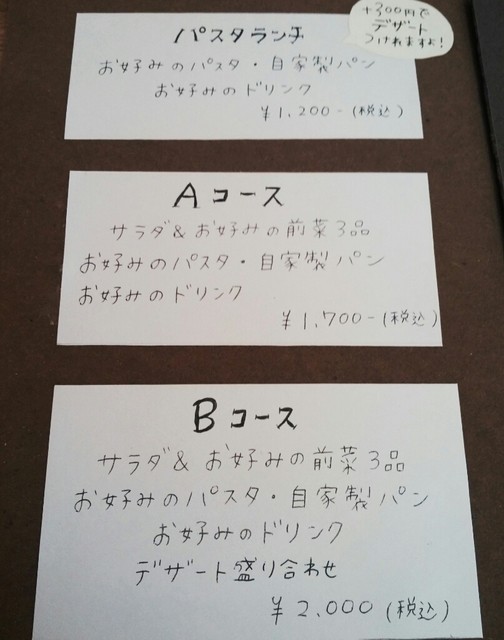 +300円で
デザート
つけれますよ!
パスタランチ
お好みのパスタ・自家製パン
お好みのドリンク
¥1,200-(税込)
Aコース
サラダ& お好みの前菜3品
お好みのパスタ・自家製パン
お好みのドリンク
¥1,700-(税込)
Bコース
サラダ& お好みの前菜3品
お好みのパスタ・自家製パン
お好みのドリンク
デザート盛り合わせ
¥2,000(税込)